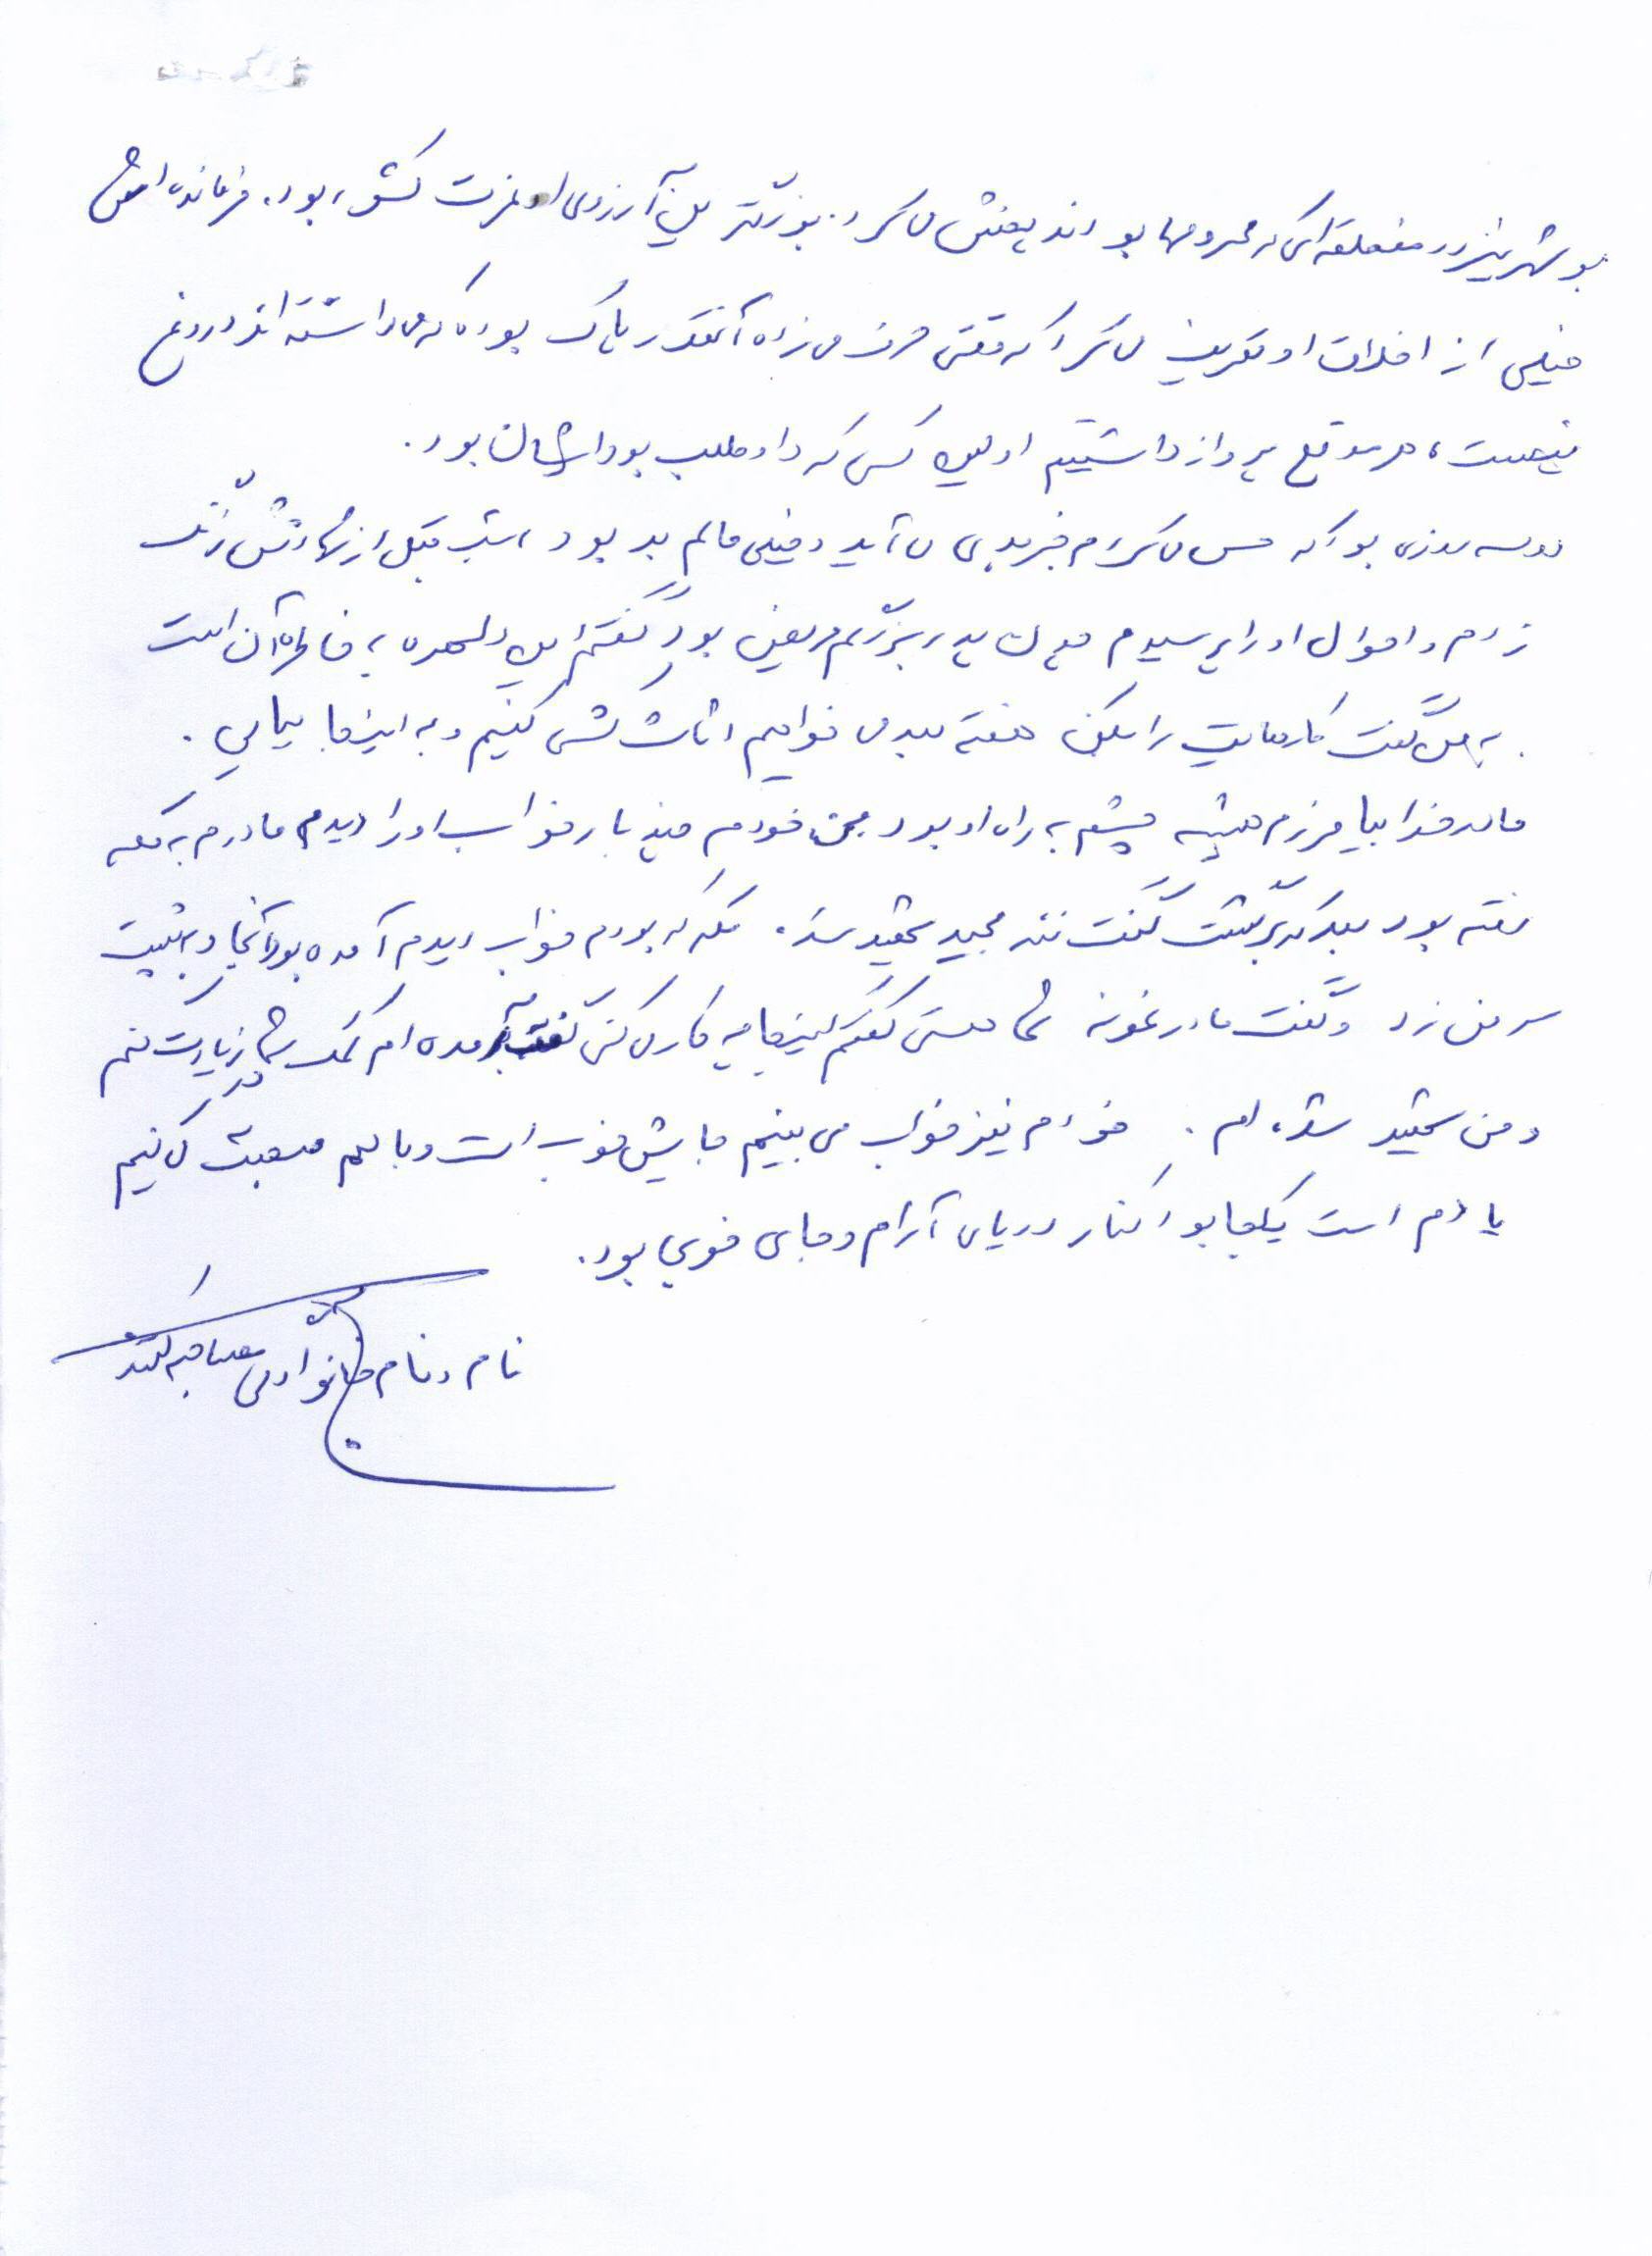 بوشهر نیز در منطقه‌ای که محرومها بودند پخش می‌کرد. بزرگترین آرزوی او عزت کشور بود. فرمانده‌اش
خیلی از اخلاق او تعریف می‌کرد که وقتی حرف می‌زد آنقدر پاک بود که می‌دانستند دروغ
نیست، هر موقع پرواز داشتیم اولین کسی که داوطلب بود ایشان بود.
دو سه روزی بود که حس می‌کردم خبر بدی می‌آید و خیلی حالم بد بود، شب قبل از شهادتش زنگ
زدم و احوال او را پرسیدم چون پدر بزرگم مریض بود گفتم این دلهره به خاطر آن است
به من گفت کارهایت را بکن هفته بعد می‌خواهیم اثاث کشی کنیم و به اینجا بیایی.
مادر خدا بیامرزم همیشه چشم به راه او بود من خودم چند بار خواب او را دیدم مادرم به مکه
رفته بود بعد که برگشت گفت ننه مجید شهید شد. مکه که بودم خواب دیدم آمده بود آنجا و به پشت
سر من زد و گفت مادر نمونه شما هستی گفتم اینجا چه کار می‌کنی گفت آمده‌ام کمک شما در زیارت کنم
و من شهید شده‌ام. خودم نیز خواب می‌بینم جایش خوب است و با هم صحبت می‌کنیم
یادم است یکجا بود کنار دریای آرام و جای خوبی بود.
نام و نام خانوادگی مصاحبه کننده